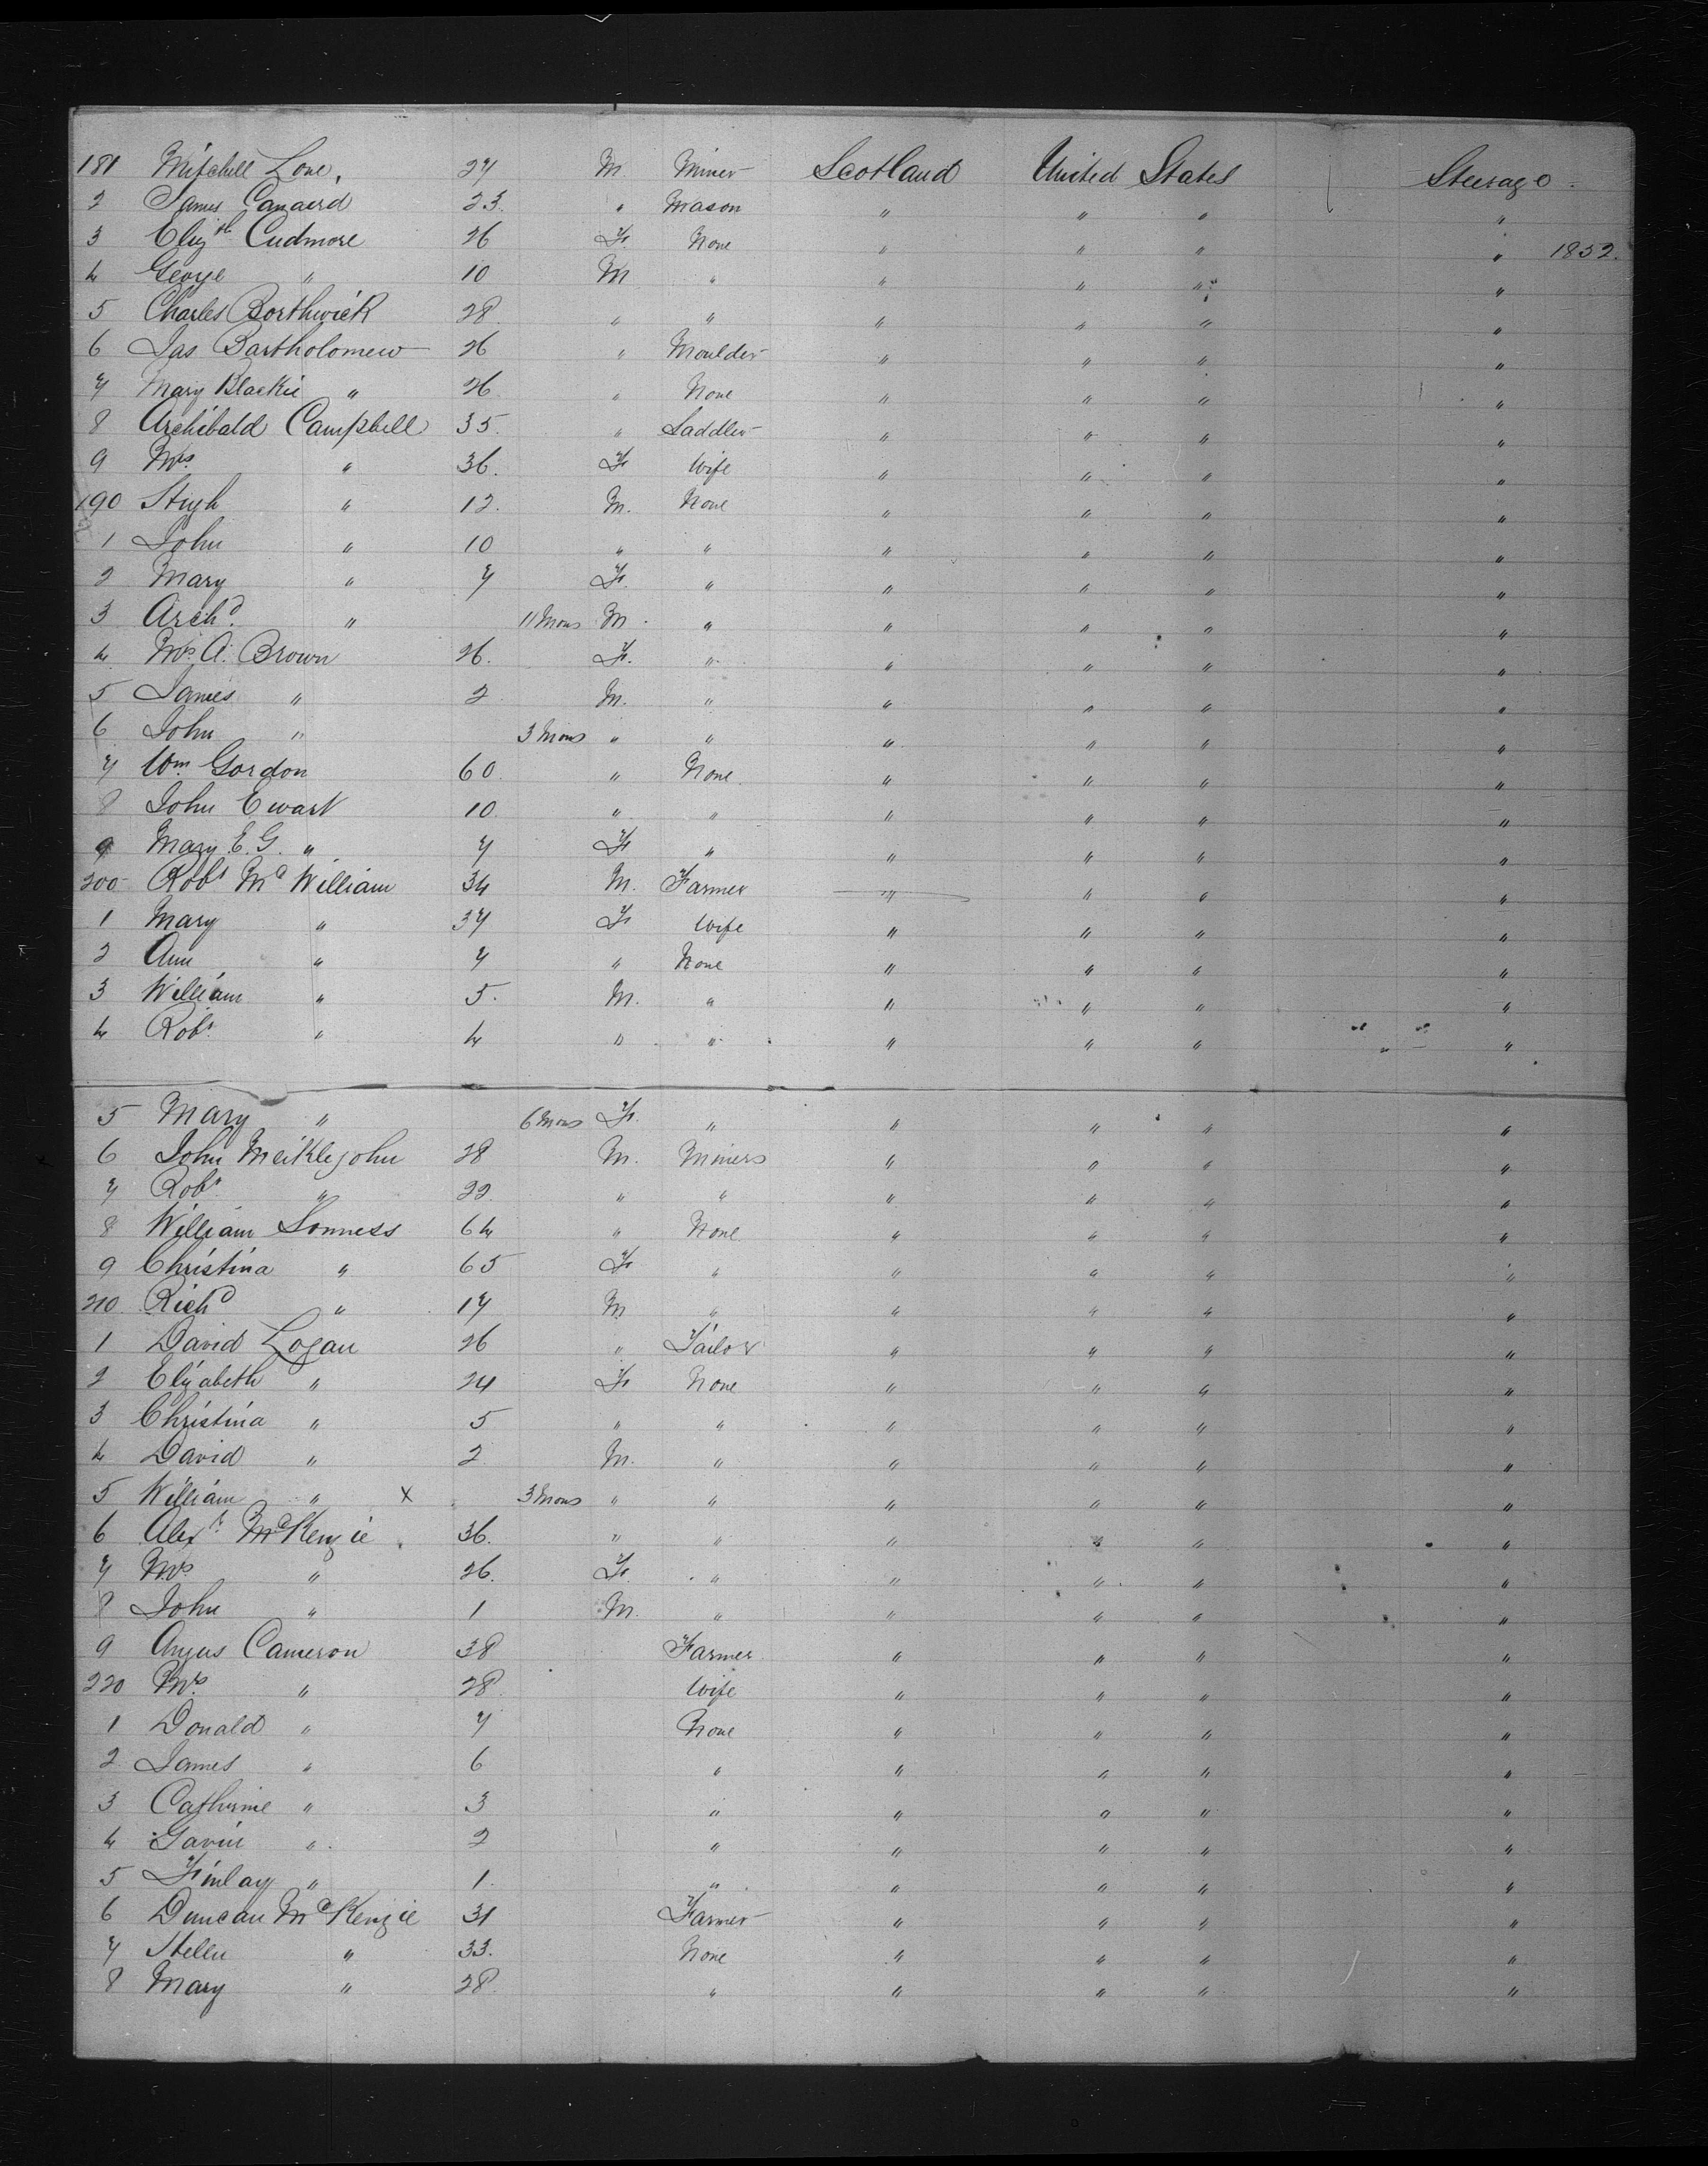 181 Mitchell Love, 27 M. Miner Scotland United States Steerage.
2 James Canaerd 23. " Mason " " " "
3 Elizth Cudmore 26 F. None " " " " 1852.
4 George " 10 M " " " " "
5 Charles Borthwick 28 " " " " " "
6 Jas Bartholomew 26 " Moulder " " " "
7 Mary Blackie " 26 " None " " " "
8 Archibald Campbell 35. " Saddler " " " "
9 Mrs " 36. F Wife " " " "
190 Hugh " 12. M. None " " " "
1 John " 10 " " " " " "
2 Mary " 7 F. " " " " "
3 Archd " 11 Mons M. " " " " "
4 Mrs A. Brown 26. F. " " " " "
5 James " 2 M. " " " " "
6 John " 3 Mons " " " " " "
7 Wm Gordon 60. " None " " " "
8 John Ewart 10. " " " " " "
9 Mary E. G. " 7 F " " " " "
200 Robt Mc William 34 M. Farmer " " " "
1 Mary " 37 F Wife " " " "
2 Ann " 7 " None " " " "
3 William " 5. M. " " " " "
4 Robt " 4 " " " " " "
5 Mary " 6 Mons F. " " " " "
6 John Meiklejohn 28 M. Miners " " " "
7 Robt " 22 " " " " " "
8 William Lonness 64 " None " " " "
9 Christina " 65 F " " " " "
210 Richd " 17 M " " " " "
1 David Logan 26 " Tailor " " " "
2 Elizabeth " 24 F None " " " "
3 Christina " 5 " " " " " "
4 David " 2 M. " " " " "
5 William " X 3 Mons " " " " " "
6 Alexr McKenzie 36. " " " " " "
7 Mrs " 26. F. " " " " "
8 John " 1 M. " " " " "
9 Angus Cameron 38 Farmer " " " "
220 Mrs " 28 Wife " " " "
1 Donald " 7 None " " " "
2 James " 6 " " " " "
3 Catherine " 3 " " " " "
4 Gavin " 2 " " " " "
5 Finlay " 1. " " " " "
6 Duncan McKenzie 31 Farmer " " " "
7 Hellen " 33. None " " " "
8 Mary " 28. " " " " "